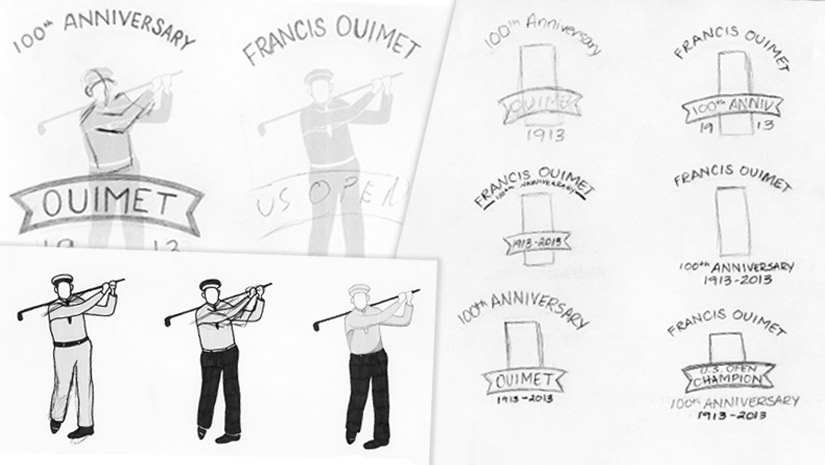 100th ANNIVERSARY
OUIMET
19 13
FRANCIS OUIMET
US OPEN
100th Anniversary
OUIMET
1913
FRANCIS OUIMET
100th ANNIV
19 13
FRANCIS OUIMET
100th ANNIVERSARY
1913-2013
FRANCIS OUIMET
100th ANNIVERSARY
1913-2013
100th ANNIVERSARY
OUIMET
1913-2013
FRANCIS OUIMET
U.S. OPEN
CHAMPION
100th ANNIVERSARY
1913-2013